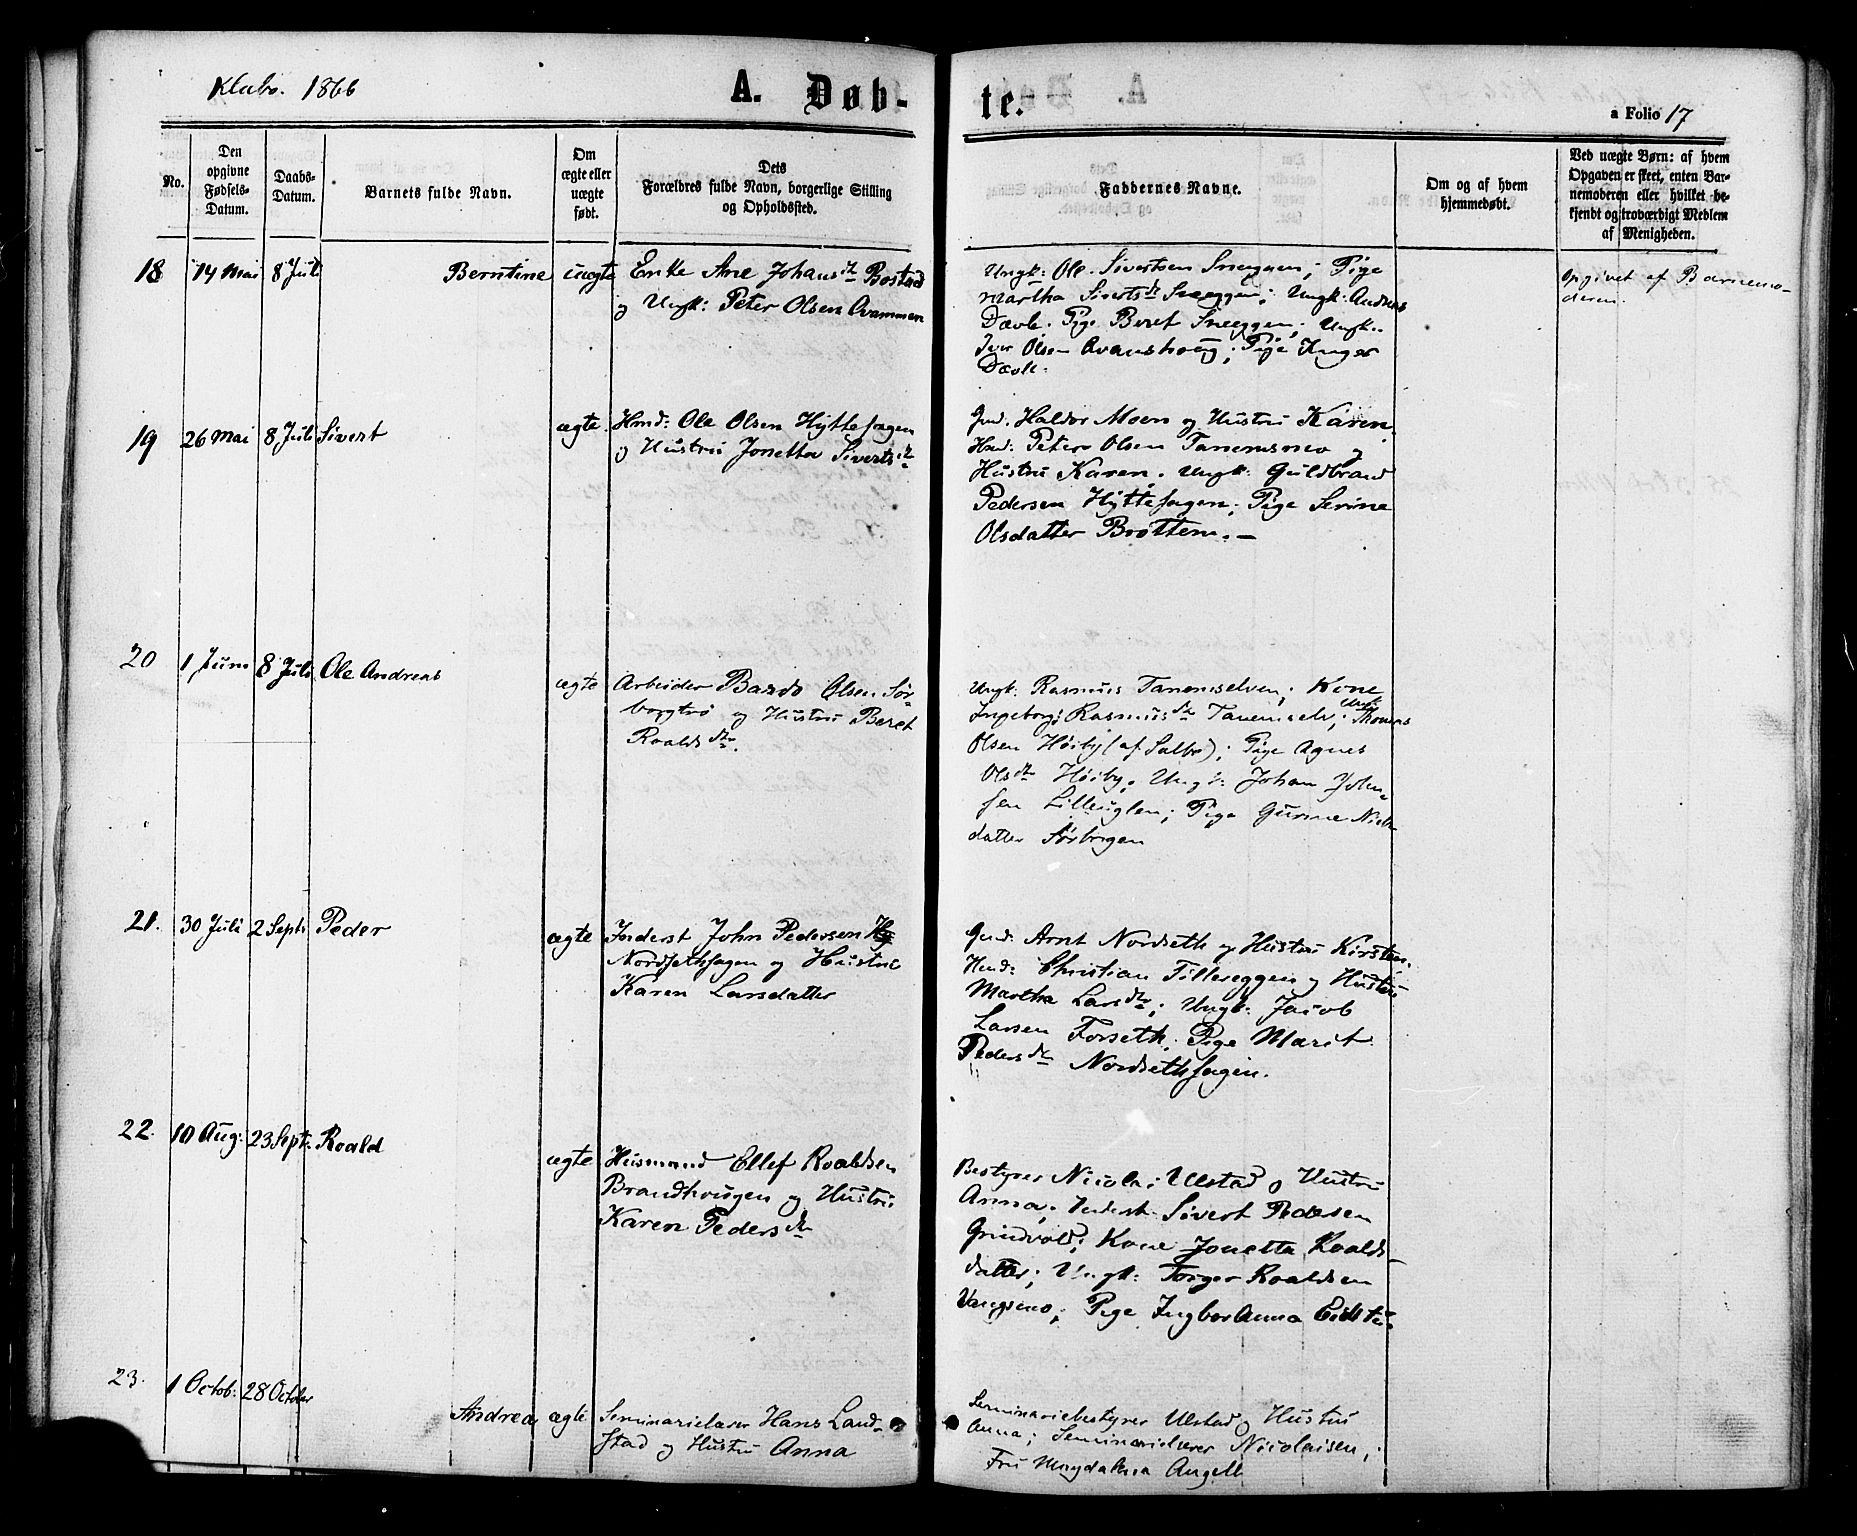 Klæbo. 1866
A. Døb-
te.
a Folio 17
No.
Den
opgivne
Fødsels-
Datum.
Daabs-
Datum.
Barnets fulde Navn.
Om
ægte eller
uægte
født.
Dets
Forældres fulde Navn, borgerlige Stilling
og Opholdssted.
Faddernes Navne.
Om og af hvem
hjemmedøbt.
Ved uægte Børn: af hvem
Opgaven er skeet, enten Bar-
nemoderen eller hvilket be-
kjendt og troværdigt Medlem
af Menigheden.
18 14 Mai 8 Juli Berntine uægte
Enke Ane Johansdtr Bostad
og Ungk: Peter Olsen Qvammen
Ungk: Ole Sivertsen Sneeggen; Pige
Martha Sivertsdtr Sneeggen; Ungk: Andreas
Dævle. Pige Beret Sneeggen; Ungk:
Iver Olsen Qvanshoug; Pige Inger
Dævle.
Opgivet af Barnemo-
deren.
19 26 Mai 8 Juli Sivert ægte
Hmd: Ole Olsen Hyttefagen
og Hustru Jonetta Sivertsdtr
Gmd. Haldor Moen og Hustru Karen.
Hmd: Peter Olsen Tanemsmo og
Hustru Karen. Ungk: Guldbrand
Pedersen Hyttefagen; Pige Serine
Olsdatter Brøttem. —
20 1 Juni 8 Juli Ole Andreas ægte
Arbeider Bardo Olsen Sør-
borgtrø og Hustru Beret
Roaldsdtr.
Ungk: Rasmus Tanemselven; Kone
Ingeborg Rasmusdtr Tanemselv; Ungk: Thomas
Olsen Høiby (af Selbo); Pige Agnes
Olsdtr Høiby; Ungk: Johan John-
sen Lilleuglen; Pige Gurine Niels-
datter Sørborgen
21. 30 Juli 2 Septr Peder ægte
Inderst John Pedersen
Nordsethfagen og Hustru
Karen Larsdatter
Gmd: Arnt Nordseth og Hustru Kirsten.
Hmd: Christian Tillereggen og Hustru
Martha Larsdtr; Ungk: Jacob
Larsen Forseth; Pige Marit
Pedersdtr Nordsethfagen.
22. 10 Aug: 23 Septr. Roald ægte
Husmand Ellef Roaldsen
Brandhougen og Hustru
Karen Pedersdtr
Bestyrer Nicolai Ulstad og Hustru
Anna; Inderst Sivert Pedersen
Grindvold; Kone Jonetta Roalds-
datter; Ungk: Torger Roaldsen
Vangsmo; Pige IngborAnna Eidstu.
23. 1 Octob: 28 October Andrea ægte
Seminarielærer Hans Land-
stad og Hustru Anna
Seminariebestyrer Ulstad og Hustru
Anna; Seminarielærer Nicolaisen;
Fru Magdalena Angell